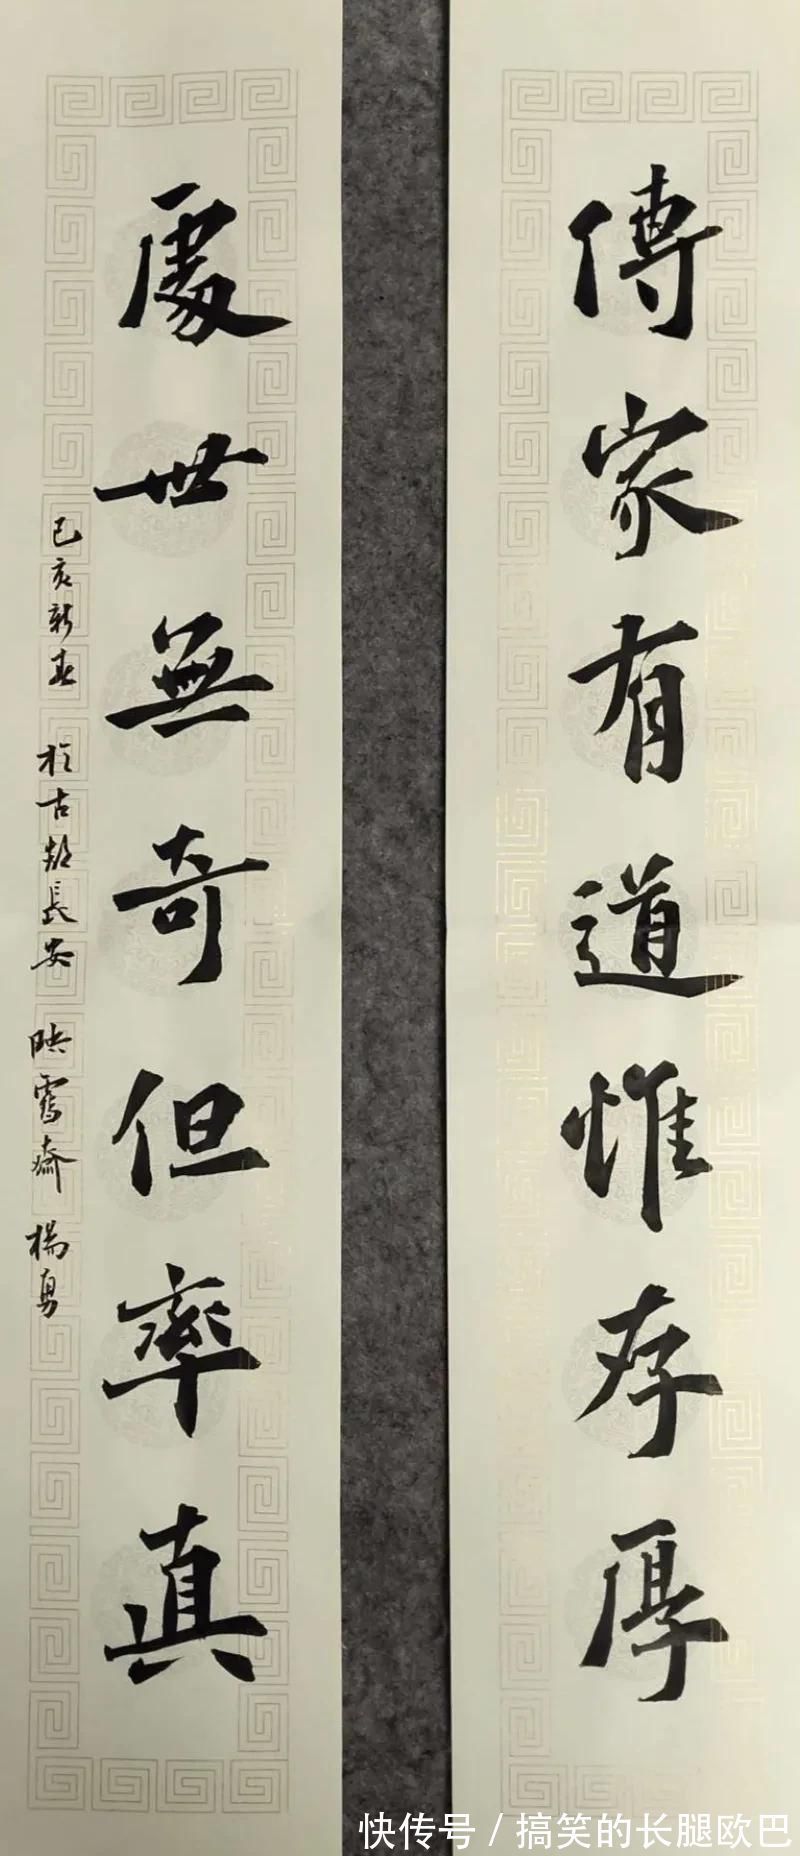 傳家有道惟存厚
處世無奇但率真
己亥新春 於古都長安 映雪齋 楊勇
快传号/搞笑的长腿欧巴